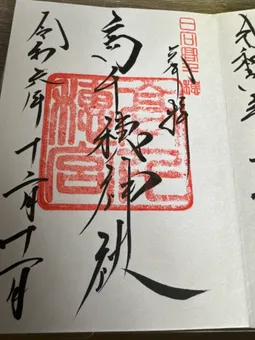 日向高千穂
奉拝
高千穂神社
高千穂宮
令和六年十二月十一日